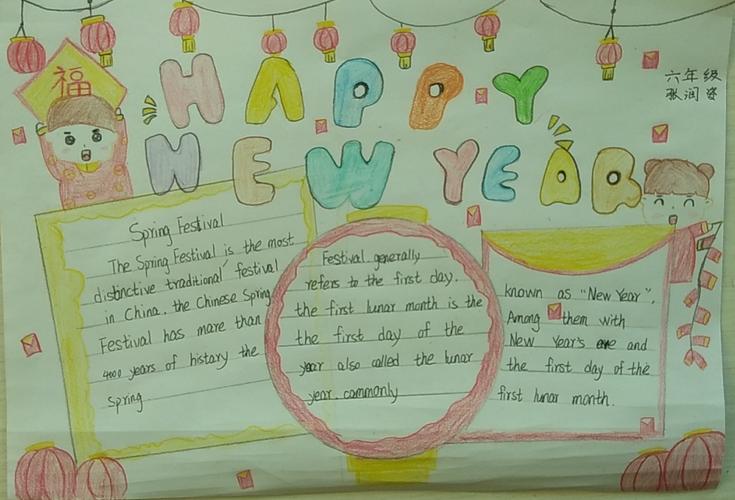 福
HAPPY
NEW YEAR
六年级
张润姿
Spring Festival
The Spring Festival is the most
distinctive traditional festival
in China. the Chinese Spring
Festival has more than
4000 years of histary the
spring
Festival generally
refers to the first day.
the first lunar month is the
the first day of the
year also called the lunar
year. commonly
known as "New Year".
Among them with
New Year's eve and
the first day of the
first lunar month.